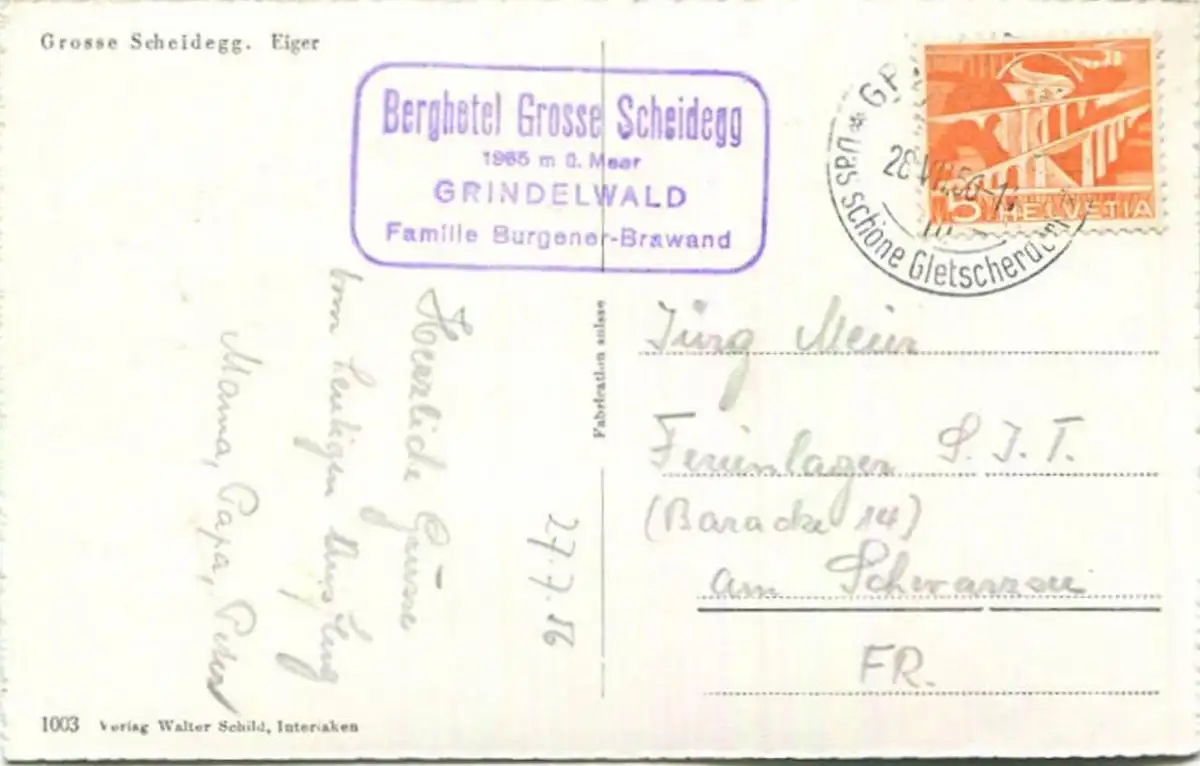 Grosse Scheidegg. Eiger
Berghotel Grosse Scheidegg
1965 m ü. Meer
GRINDELWALD
Familie Burgener-Brawand
Das schöne Gletscherdorf
5 HELVETIA
Herzliche Grüsse
vom heutigen Ausflug
Mama, Papa, Peter
27.7.56
Fabrication suisse
Jürg Meier
Ferienlager S.J.T.
(Baracke 14)
am Schwarzsee
FR.
1003 Verlag Walter Schild, Interlaken